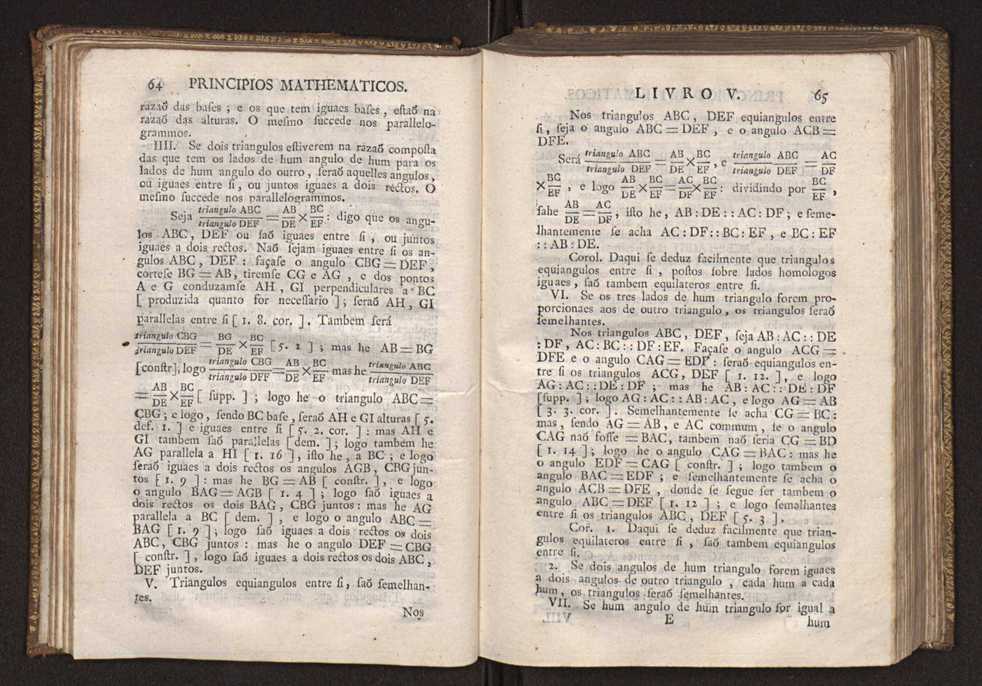 64 PRINCIPIOS MATHEMATICOS.
razaõ das baſes ; e os que tem iguaes baſes , eſtaõ na
razaõ das alturas. O meſmo ſuccede nos parallelo-
grammos.
IIII. Se dois triangulos eſtiverem na razaõ compoſta
das que tem os lados de hum angulo de hum para os
lados de hum angulo do outro , ſeraõ aquelles angulos ,
ou iguaes entre ſi , ou juntos iguaes a dois rectos. O
meſmo ſuccede nos parallelogrammos.
Seja triangulo ABC / triangulo DEF = AB/DE × BC/EF : digo que os angu-
los ABC , DEF ou ſaõ iguaes entre ſi , ou juntos
iguaes a dois rectos. Naõ ſejam iguaes entre ſi os an-
gulos ABC , DEF : façaſe o angulo CBG = DEF ,
corteſe BG = AB , tiremſe CG e AG , e dos pontos
A e G conduzamſe AH , GI perpendiculares a BC
[ produzida quanto for neceſſario ] ; ſeraõ AH , GI
parallelas entre ſi [ 1. 8. cor. ] . Tambem ſerá
triangulo CBG / triangulo DEF = BG/DE × BC/EF [ 5. 2 ] ; mas he AB = BG
[conſtr], logo triangulo CBG / triangulo DFF = AB/DE × BC/EF mas he triangulo ABC / triangulo DEF
= AB/DE × BC/EF [ ſupp. ] ; logo he o triangulo ABC =
CBG ; e logo , ſendo BC baſe , ſeraõ AH e GI alturas [ 5.
def. 1. ] e iguaes entre ſi [ 5. 2. cor. ] : mas AH e
GI tambem ſaõ parallelas [ dem. ] ; logo tambem he
AG parallela a HI [ 1. 16 ] , iſto he , a BC ; e logo
ſeraõ iguaes a dois rectos os angulos AGB , CBG jun-
tos [ 1. 9 ] : mas he BG = AB [ conſtr. ] , e logo
o angulo BAG = AGB [ 1. 4 ] ; logo ſaõ iguaes a
dois rectos os dois BAG , CBG juntos : mas he AG
parallela a BC [ dem. ] , e logo o angulo ABC =
BAG [ 1. 9 ] ; logo ſaõ iguaes a dois rectos os dois
ABC , CBG juntos : mas he o angulo DEF = CBG
[ conſtr. ] , logo ſaõ iguaes a dois rectos os dois ABC ,
DEF juntos.
V. Triangulos equiangulos entre ſi , ſaõ ſemelhan-
tes.
Nos
LIVRO V. 65
Nos triangulos ABC , DEF equiangulos entre
ſi , ſeja o angulo ABC = DEF , e o angulo ACB =
DFE.
Será triangulo ABC / triangulo DEF = AB/DE × BC/EF , e triangulo ABC / triangulo DEF = AC/DF
× BC/EF , e logo AB/DE × BC/EF = AC/DF × BC/EF : dividindo por BC/EF ,
ſahe AB/DE = AC/DF , iſto he , AB : DE : : AC : DF ; e ſeme-
lhantemente ſe acha AC : DF : : BC : EF , e BC : EF
: : AB : DE.
Corol. Daqui ſe deduz facilmente que triangulos
equiangulos entre ſi , poſtos ſobre lados homologos
iguaes , ſaõ tambem equilateros entre ſi.
VI. Se os tres lados de hum triangulo forem pro-
porcionaes aos de outro triangulo , os triangulos ſeraõ
ſemelhantes.
Nos triangulos ABC , DEF , ſeja AB : AC : : DE
: DF , AC : BC : : DF : EF. Façaſe o angulo ACG =
DFE e o angulo CAG = EDF : ſeraõ equiangulos en-
tre ſi os triangulos ACG , DEF [ 1. 12. ] , e logo
AG : AC : : DE : DF ; mas he AB : AC : : DE : DF
[ſupp. ] ; logo AG : AC : : AB : AC , e logo AG = AB
[ 3. 3. cor. ] . Semelhantemente ſe acha CG = BC :
mas , ſendo AG = AB , e AC commum , ſe o angulo
CAG naõ foſſe = BAC, tambem naõ ſeria CG = BD
[ 1. 14 ] ; logo he o angulo CAG = BAC : mas he
o angulo EDF = CAG [ conſtr. ] ; logo tambem o
angulo BAC = EDF ; e ſemelhantemente ſe acha o
angulo ACB = DFE , donde ſe ſegue ſer tambem o
angulo ABC = DEF [ 1. 12 ] ; e logo ſemelhantes
entre ſi os triangulos ABC , DEF [ 5. 3 ] .
Cor. 1. Daqui ſe deduz facilmente que trian-
gulos equilateros entre ſi , ſaõ tambem equiangulos
entre ſi.
2. Se dois angulos de hum triangulo forem iguaes
a dois angulos de outro triangulo , cada hum a cada
hum , os triangulos ſeraõ ſemelhantes.
VII. Se hum angulo de hum triangulo for igual a
E hum